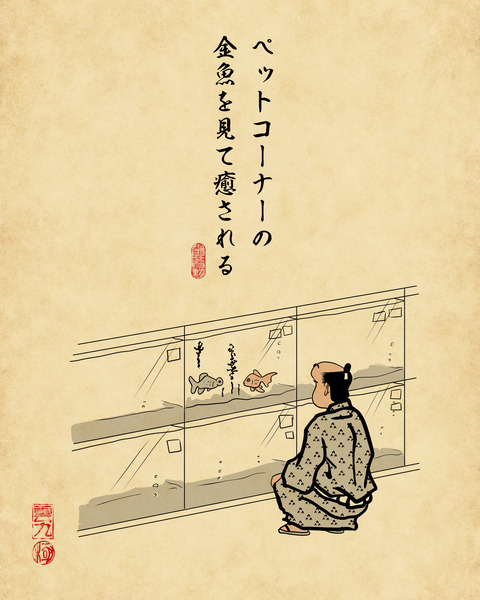 ペットコーナーの
金魚を見て癒される